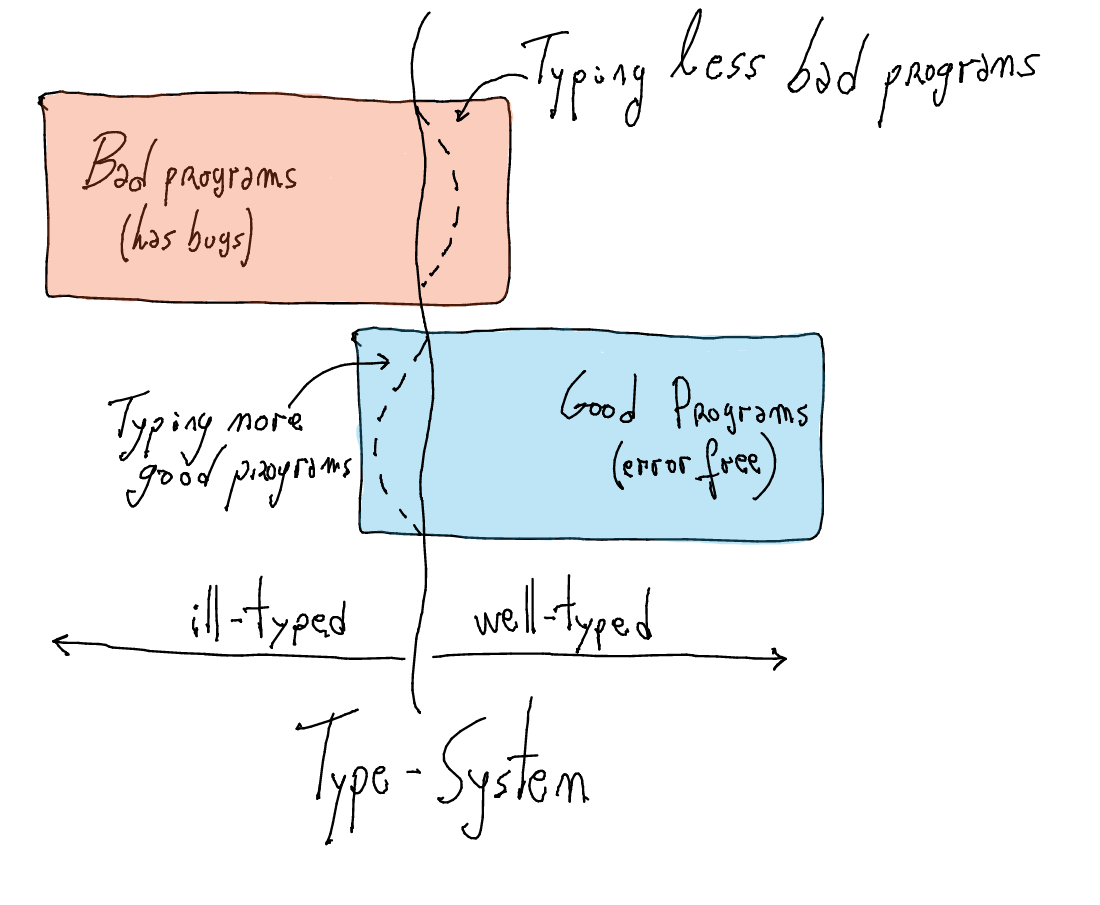 Typing less bad programs
Bad programs
(has bugs)
Typing more
good programs
Good Programs
(error free)
ill-typed
well-typed
Type-System